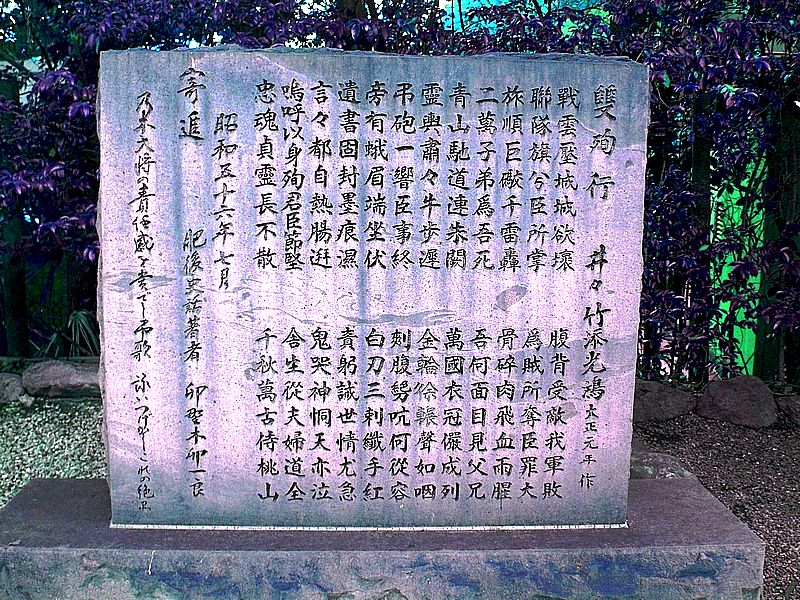 雙殉行 井々 竹添光鴻 大正元年作
戰雲壓城城欲壞 腹背受敵我軍敗
聯隊旗兮臣所掌 爲賊所奪臣罪大
旅順巨礮千雷轟 骨碎肉飛血雨腥
二萬子弟爲吾死 吾何面目見父兄
青山馳道連朱闕 萬國衣冠儼成列
靈輿肅々牛歩遲 金輪徐輾聲如咽
弔砲一響臣事終 刺腹吭何從容
旁有蛾眉端坐伏 白刃三刺纖手紅
遺書固封墨痕濕 責躬誡世情尤急
言々都自熱腸迸 鬼哭神恫天亦泣
嗚呼以身殉君臣節堅 舍生從夫婦道全
忠魂貞靈長不散 千秋萬古侍桃山
昭和五十六年七月
寄進 肥後史話著者 卯野木卯一良
乃木大将の責任感を 弔歌 これの絶唱